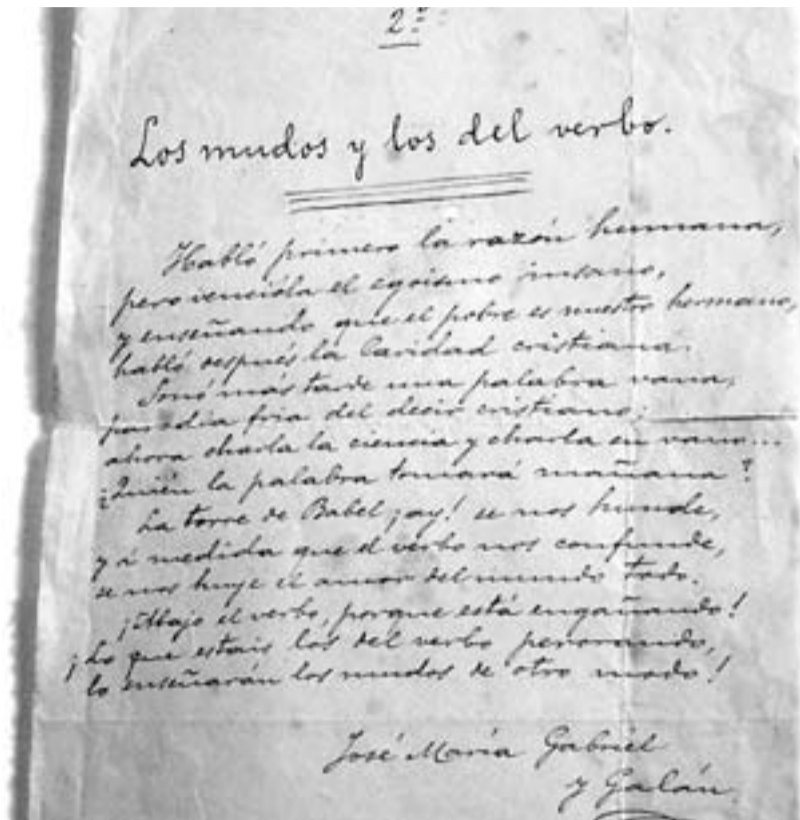 2ª
Los mudos y los del verbo.
Habló primero la razón humana,
pero vencióla el egoísmo insano,
y enseñando que el pobre es nuestro hermano,
habló después la Caridad cristiana.
Sonó más tarde una palabra vana,
parodia fría del decir cristiano;
ahora charla la ciencia y charla en vano...
¿Quién la palabra tomará mañana?
La torre de Babel ¡ay! se nos hunde,
y á medida que el verbo nos confunde,
se nos huye el amor del mundo todo.
¡Abajo el verbo, porque está engañando!
¡Lo que estais los del verbo perorando,
lo enseñarán los mudos de otro modo!
José María Gabriel
y Galán